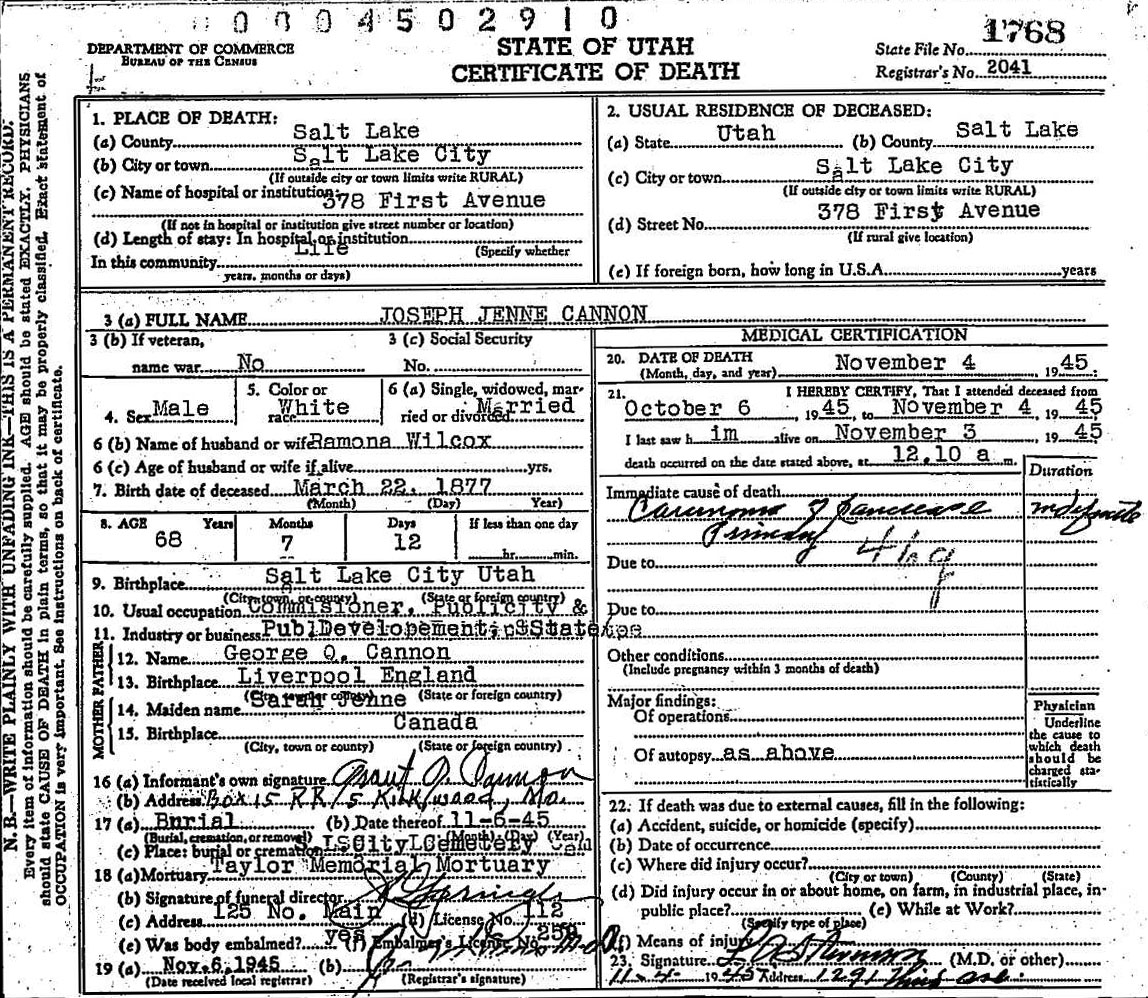 0004502910
DEPARTMENT OF COMMERCE
BUREAU OF THE CENSUS
STATE OF UTAH
CERTIFICATE OF DEATH
State File No. 1768
Registrar's No. 2041
N. B.—WRITE PLAINLY WITH UNFADING INK—THIS IS A PERMANENT RECORD.
Every item of information should be carefully supplied. AGE should be stated EXACTLY. PHYSICIANS
should state CAUSE OF DEATH in plain terms, so that it may be properly classified. Exact statement of
OCCUPATION is very important. See instructions on back of certificate.
1. PLACE OF DEATH:
(a) County Salt Lake
(b) City or town Salt Lake City
(If outside city or town limits write RURAL)
(c) Name of hospital or institution: 378 First Avenue
(If not in hospital or institution give street number or location)
(d) Length of stay: In hospital or institution
(Specify whether
In this community Life
years, months or days)
2. USUAL RESIDENCE OF DECEASED:
(a) State Utah (b) County Salt Lake
(c) City or town Salt Lake City
(If outside city or town limits write RURAL)
(d) Street No. 378 First Avenue
(If rural give location)
(e) If foreign born, how long in U.S.A. years
3 (a) FULL NAME JOSEPH JENNE CANNON
3 (b) If veteran,
name war No
3 (c) Social Security
No.
4. Sex Male
5. Color or
race White
6 (a) Single, widowed, mar-
ried or divorced Married
6 (b) Name of husband or wife Ramona Wilcox
6 (c) Age of husband or wife if alive yrs.
7. Birth date of deceased March 22, 1877
(Month) (Day) Year)
8. AGE Years Months Days If less than one day
68 7 12 hr. min.
9. Birthplace Salt Lake City Utah
(City town, or county) (State or foreign country)
10. Usual occupation Commisioner, Publicity &
11. Industry or business Pub Developement, State
MOTHER FATHER
12. Name George Q. Cannon
13. Birthplace Liverpool England
(City, town or county) (State or foreign country)
14. Maiden name Sarah Jenne
15. Birthplace Canada
(City, town or county) (State or foreign country)
16 (a) Informant's own signature Grant J. Cannon
(b) Address Box 15 RR 15 Kirkwood, Mo.
17 (a) Burial (b) Date thereof 11-6-45
(Burial, cremation, or removal) (Month) (Day) (Year)
(c) Place: burial or cremation S L City Cemetery
18 (a) Mortuary Taylor Memorial Mortuary
(b) Signature of funeral director
(c) Address 125 No. Main (d) License No. 112
(e) Was body embalmed? yes (f) Embalmer's License No. 258
19 (a) Nov. 6, 1945 (b)
(Date received local registrar) (Registrar's signature)
MEDICAL CERTIFICATION
20. DATE OF DEATH
(Month, day, and year) November 4, 1945.
21. I HEREBY CERTIFY, That I attended deceased from
October 6, 1945, to November 4, 1945
I last saw him alive on November 3 1945
death occurred on the date stated above, at 12.10 a m.
Duration
Immediate cause of death
Carcinoma of Pancreas indefinite
Primary
Due to
Due to
Other conditions
(Include pregnancy within 3 months of death)
Major findings:
Of operations
Of autopsy as above
Physician
Underline
the cause to
which death
should be
charged sta-
tistically
22. If death was due to external causes, fill in the following:
(a) Accident, suicide, or homicide (specify)
(b) Date of occurrence
(c) Where did injury occur?
(City or town) (County) (State)
(d) Did injury occur in or about home, on farm, in industrial place, in-
public place? (e) While at Work?
(Specify type of place)
(f) Means of injury
23. Signature (M.D. or other)
11-4- 1945 Address 1291 Third Ave.